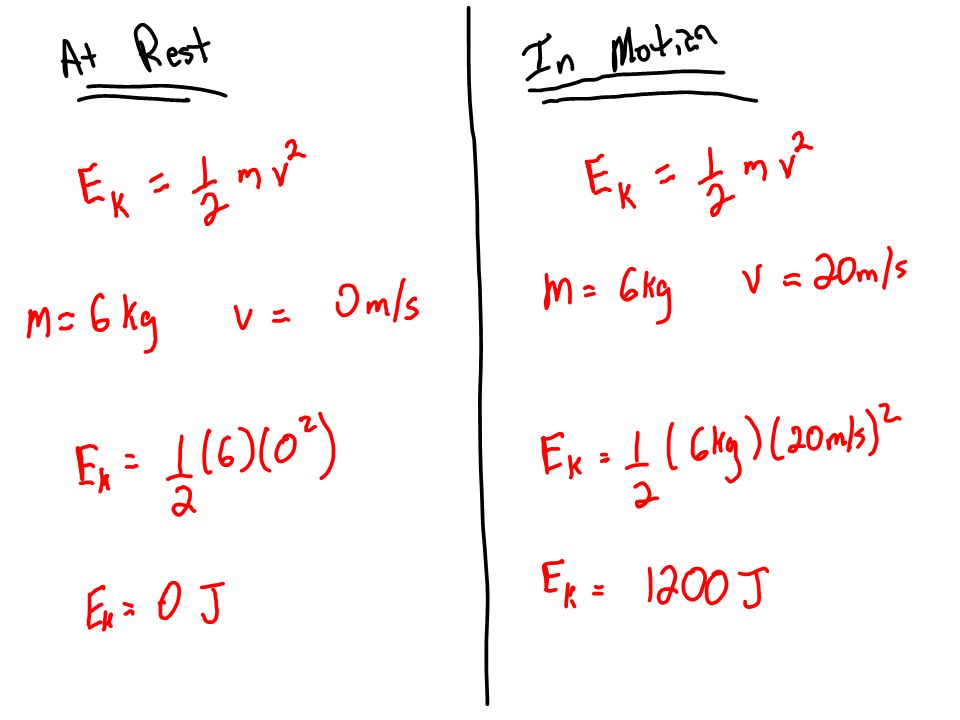 At Rest
E_k = 1/2 m v²
m = 6 kg v = 0 m/s
E_k = 1/2 (6)(0²)
E_k = 0 J
In Motion
E_k = 1/2 m v²
m = 6kg v = 20m/s
E_k = 1/2 (6kg)(20m/s)²
E_k = 1200 J